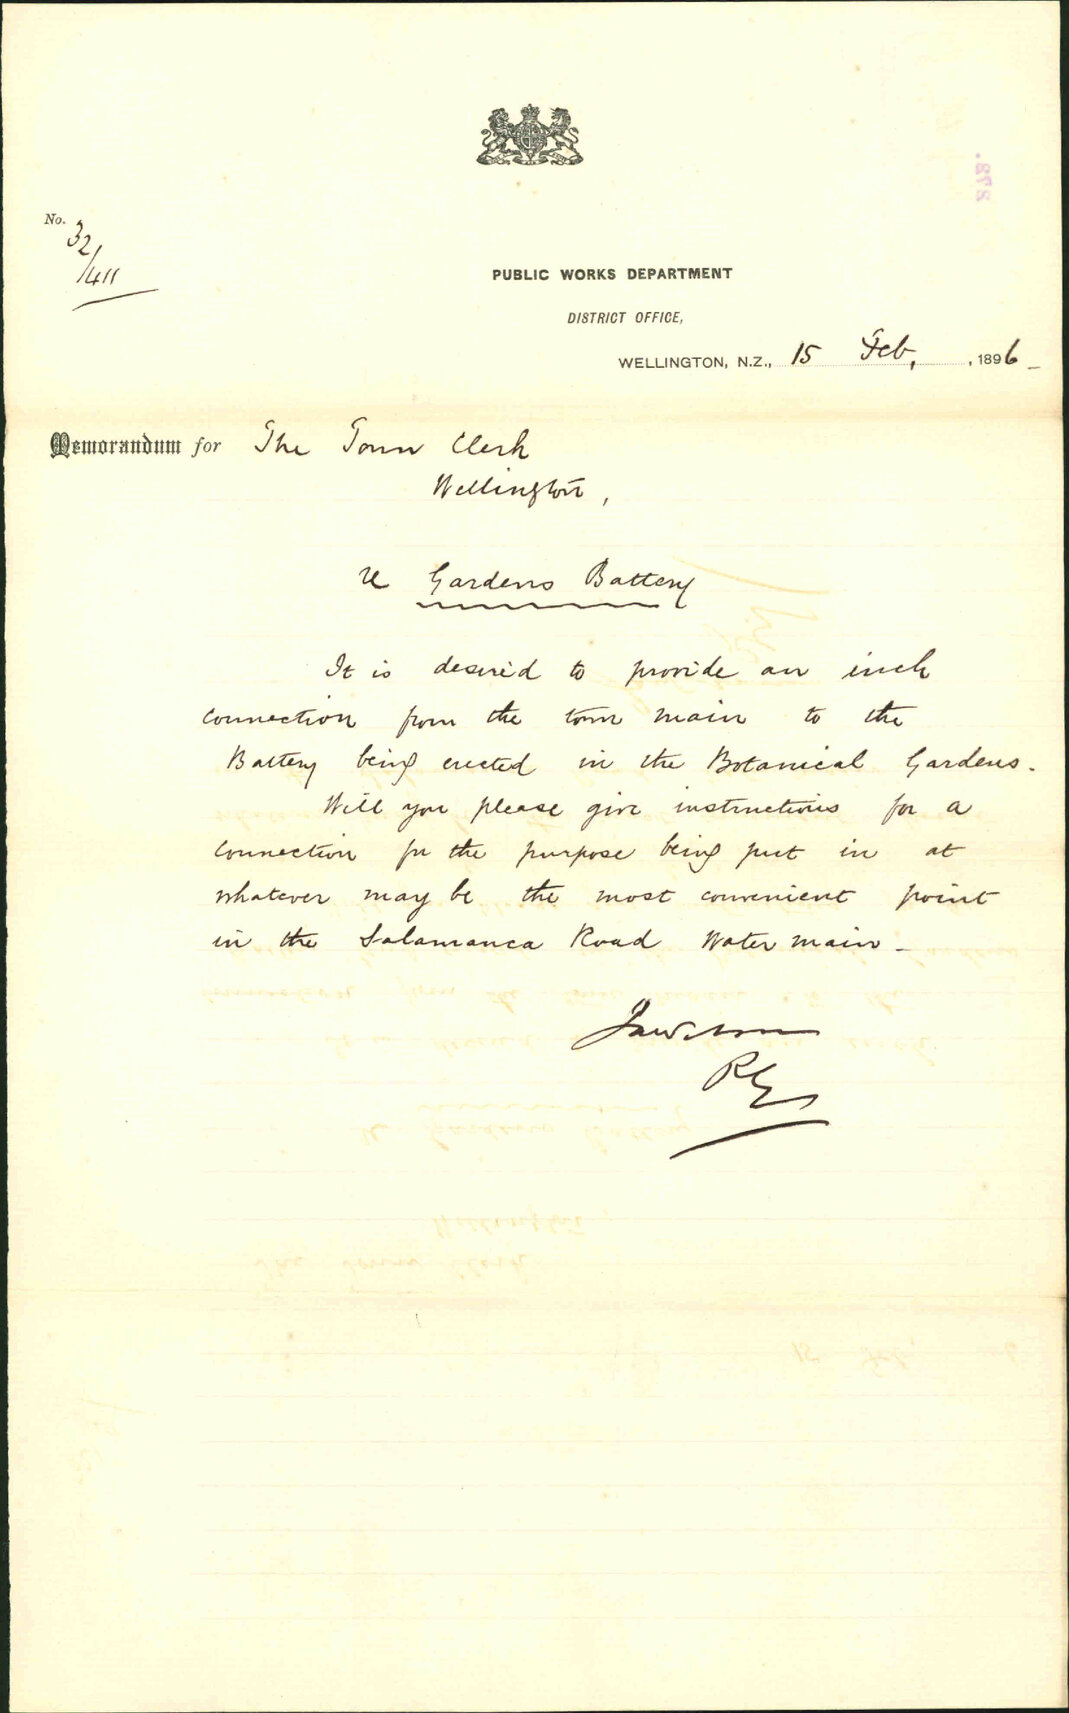 No. 32/411
PUBLIC WORKS DEPARTMENT
DISTRICT OFFICE,
WELLINGTON, N.Z., 15 Feb, , 1896_
Memorandum for The Town Clerk
Wellington,
re Gardens Battery
It is desired to provide an inch
connection from the town main to the
Battery being erected in the Botanical Gardens.
Will you please give instructions for a
connection for the purpose being put in at
whatever may be the most convenient point
in the Salamanca Road Water main_